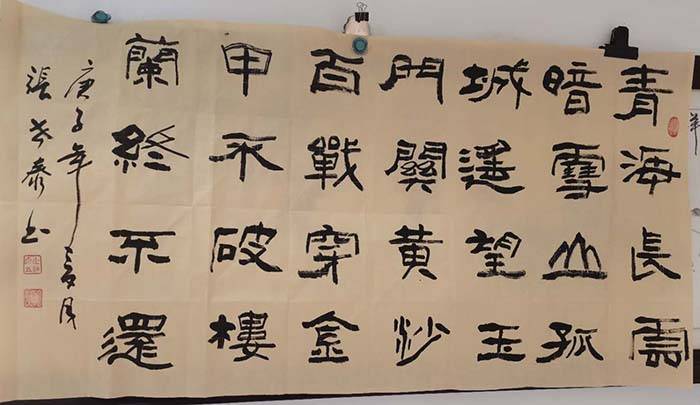 青海長雲
暗雪山孤
城遥望玉
門關黄沙
百戰穿金
甲不破樓
蘭終不還
庚子年月
張泰书